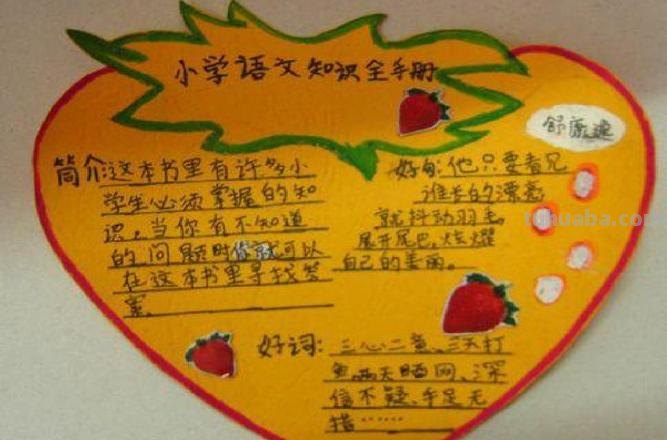 小学语文知识全手册
舒康速
简介:这本书里有许多小
学生必须掌握的知
识。当你有不知道
的问题时你就可以
在这本书里寻找答
案。
好句:他只要看见
谁长的漂亮
就抖动羽毛,
展开尾巴,炫耀
自己的美丽。
好词:三心二意、三天打
鱼,两天晒网、深
信不疑、手足无
措……